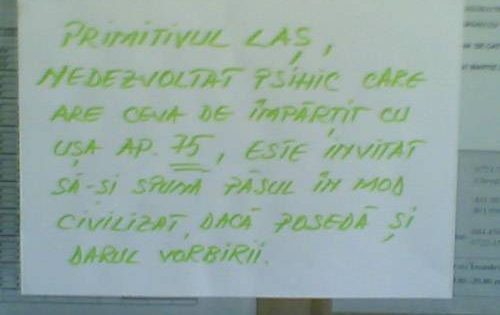 PRIMITIVUL LAȘ,
NEDEZVOLTAT PSIHIC CARE
ARE CEVA DE ÎMPĂRȚIT CU
UȘA AP. 75, ESTE INVITAT
SĂ-ȘI SPUNĂ PĂSUL ÎN MOD
CIVILIZAT, DACĂ POSEDĂ ȘI
DARUL VORBIRII.